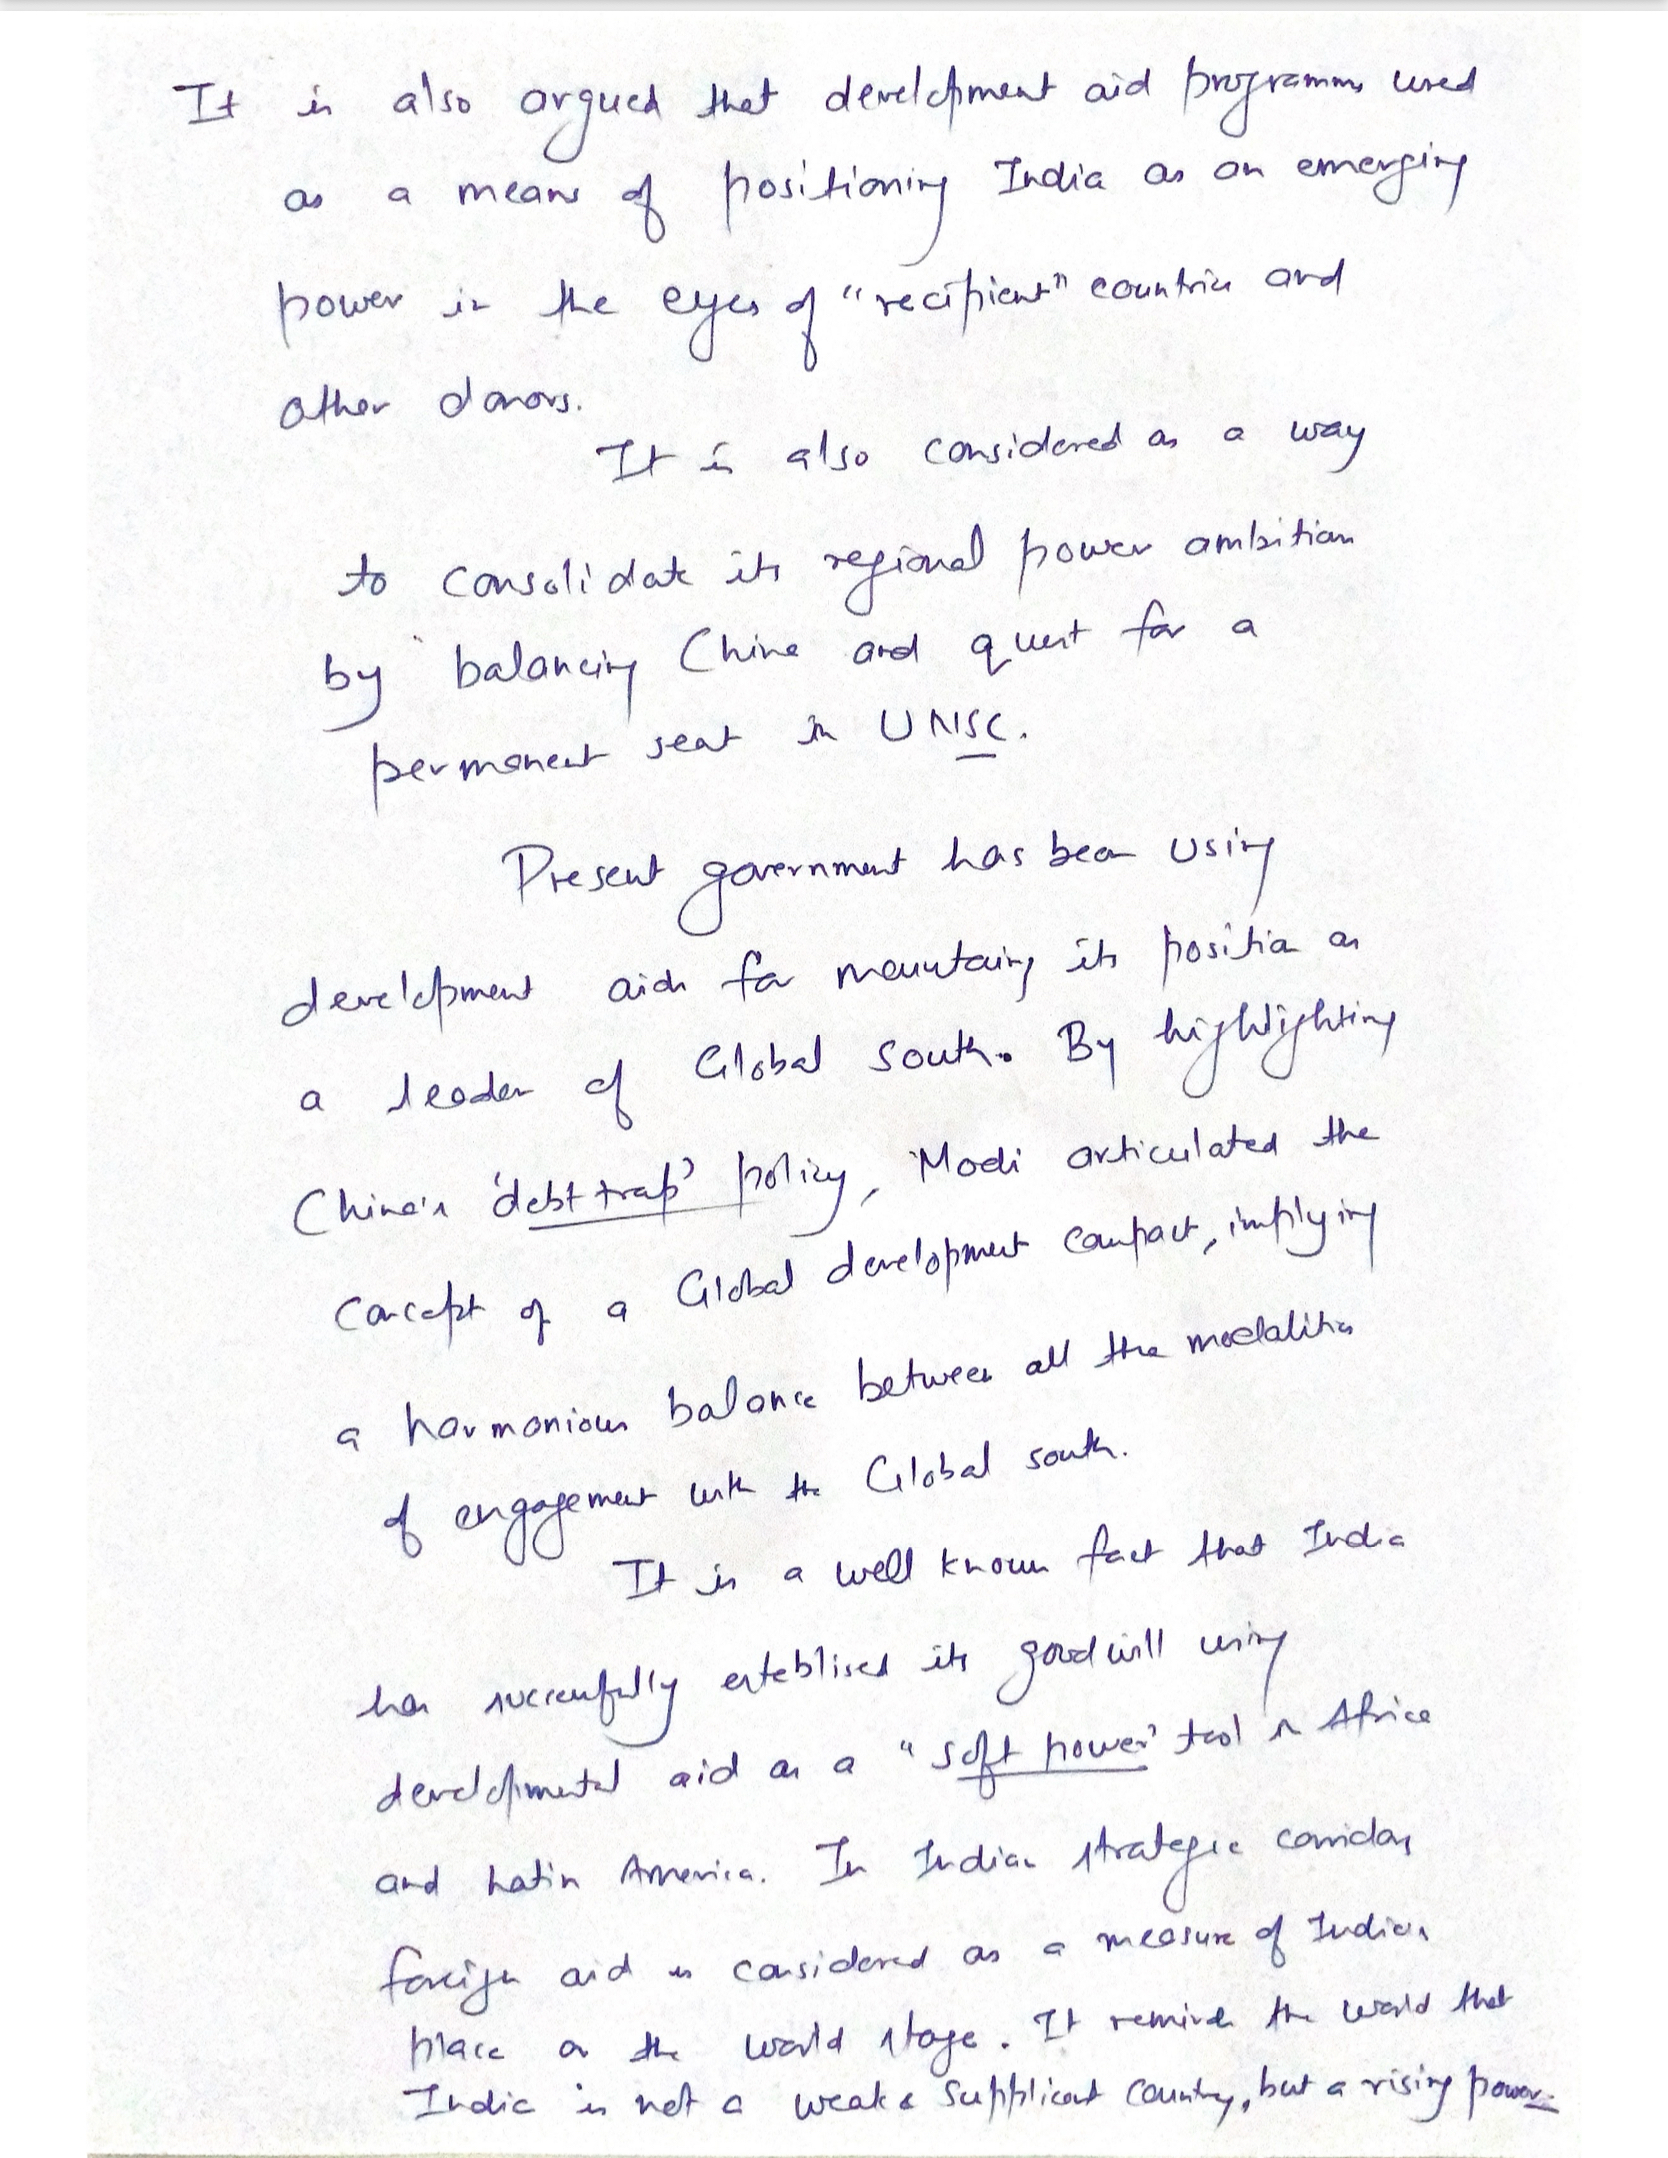 It is also argued that development aid programms used
as a means of positioning India as an emerging
power in the eyes of "recipient" countries and
other donors.
It is also considered as a way
to consolidate its regional power ambition
by balancing China and quest for a
permanent seat in UNSC.
Present government has been using
development aid for maintaing its position as
a leader of Global south. By highlighting
China's 'debt trap' policy, Modi articulated the
concept of a Global development compact, implying
a harmonious balance between all the modalities
of engagement with the Global south.
It is a well known fact that India
has successfully established its goodwill using
developmental aid as a "soft power' tool in Africa
and Latin America. In Indian strategic corridors
foreign aid is considered as a measure of Indias
place on the world stage. It reminds the world that
India is not a weak & supplicant country, but a rising power.